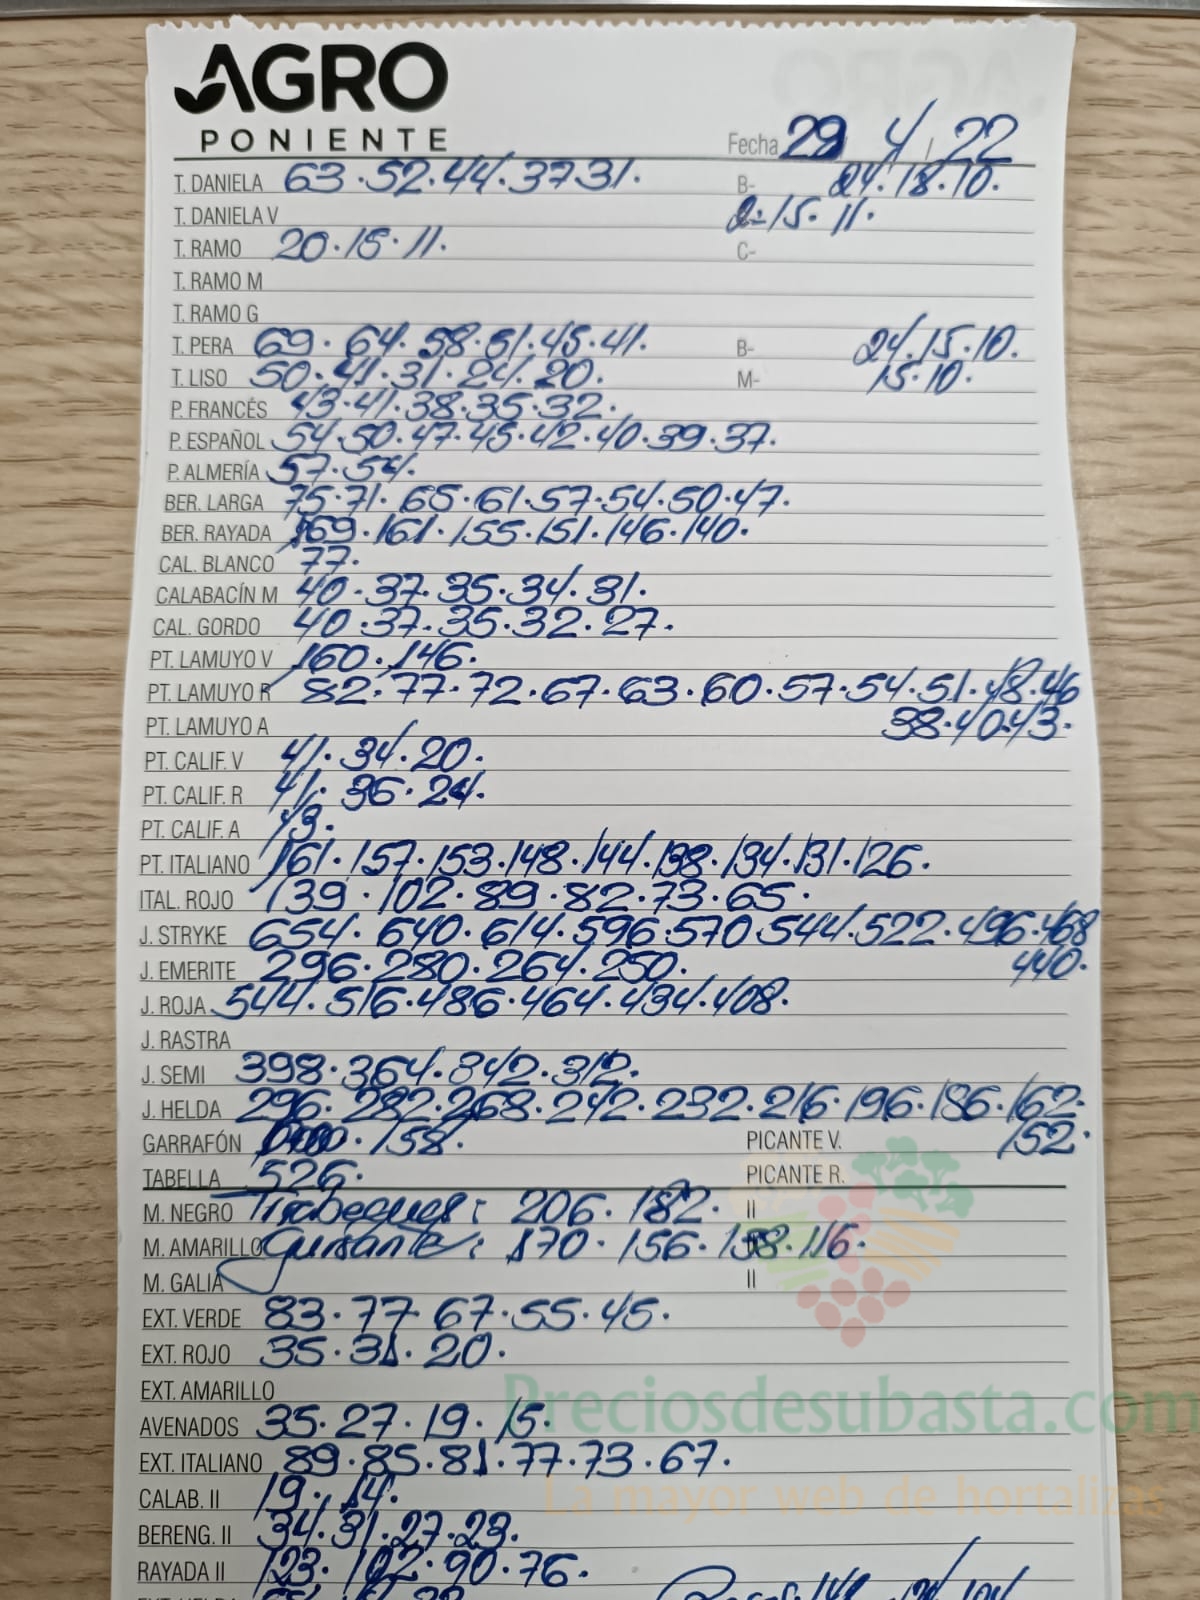 AGRO
PONIENTE
Fecha 29 4/22
T. DANIELA 63·52·44·37·31· B- 24·18·10·
T. DANIELA V 2-15·11·
T. RAMO 20·15·11· C-
T. RAMO M
T. RAMO G
T. PERA 69·64·58·51·45·41· B- 24·15·10·
T. LISO 50·41·31·24·20· M- 15·10·
P. FRANCÉS 43·41·38·35·32·
P. ESPAÑOL 54·50·47·45·42·40·39·37·
P. ALMERÍA 57·54·
BER. LARGA 75·71·65·61·57·54·50·47·
BER. RAYADA 169·161·155·151·146·140·
CAL. BLANCO 77·
CALABACÍN M 40·37·35·34·31·
CAL. GORDO 40·37·35·32·27·
PT. LAMUYO V 160·146·
PT. LAMUYO R 82·77·72·67·63·60·57·54·51·48·46
PT. LAMUYO A 38·40·43·
PT. CALIF. V 41·34·20·
PT. CALIF. R 41·36·24·
PT. CALIF. A 43·
PT. ITALIANO 161·157·153·148·144·138·134·131·126·
ITAL. ROJO 139·102·89·82·73·65·
J. STRYKE 654·640·614·596·570·544·522·496·468
J. EMERITE 296·280·264·250· 440·
J. ROJA 544·516·486·464·434·408·
J. RASTRA
J. SEMI 398·364·342·312·
J. HELDA 296·282·268·242·232·216·196·186·162·
GARRAFÓN 158· PICANTE V. 152·
TABELLA 526· PICANTE R.
M. NEGRO Tirabeques: 206·182· II
M. AMARILLO Guisante: 170·156·138·116·
M. GALIA II
EXT. VERDE 83·77·67·55·45·
EXT. ROJO 35·31·20·
EXT. AMARILLO
Preciosdesubasta.com
AVENADOS 35·27·19·15·
EXT. ITALIANO 89·85·81·77·73·67·
La mayor web de hortalizas
CALAB. II 19·14·
BERENG. II 34·31·27·23·
RAYADA II 123·102·90·76·